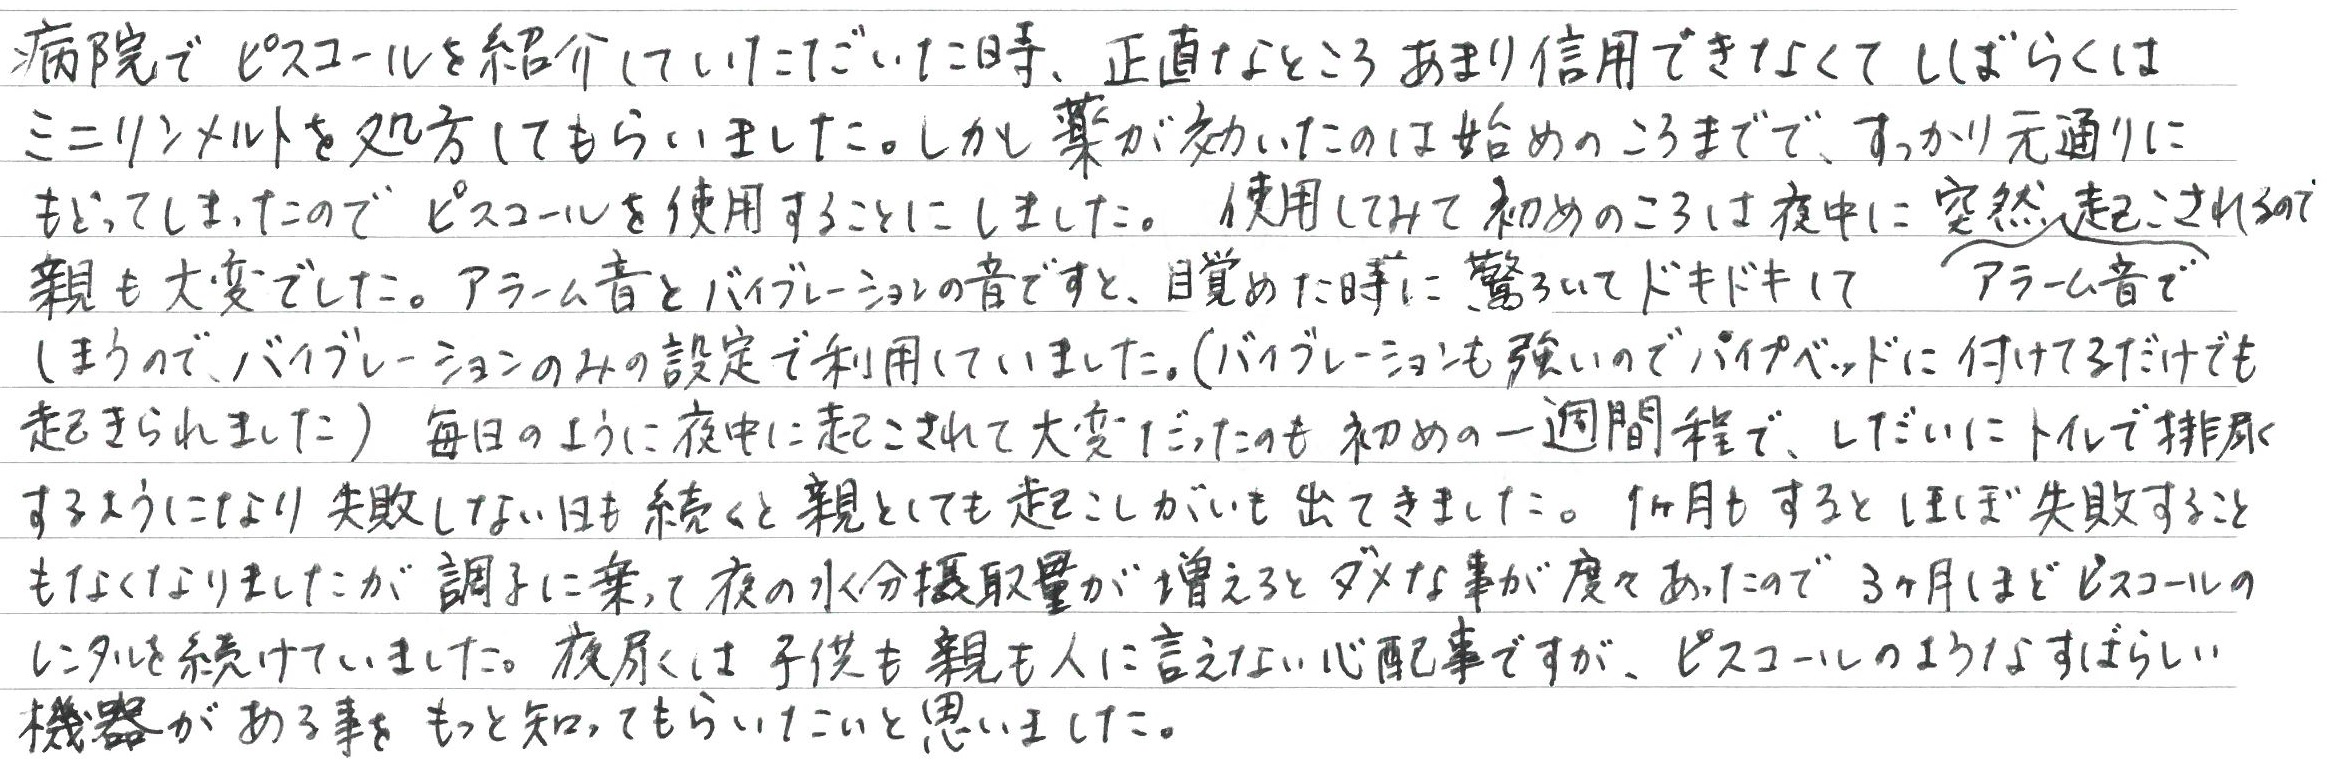 病院でピスコールを紹介していただいた時、正直なところあまり信用できなくてしばらくは
ミニリンメルトを処方してもらいました。しかし薬が効いたのは始めのころまでで、すっかり元通りに
もどってしまったのでピスコールを使用することにしました。 使用してみて初めのころは夜中に突然、起こされるので
親も大変でした。アラーム音とバイブレーションの音ですと、目覚めた時に驚ろいてドキドキして アラーム音で
しまうので、バイブレーションのみの設定で利用していました。(バイブレーションも強いのでパイプベッドに付けてるだけでも
起きられました) 毎日のように夜中に起こされて大変だったのも初めの一週間程で、しだいにトイレで排尿
するようになり失敗しない日も続くと親としても起こしがいも出てきました。1ヶ月もするとほぼ失敗すること
もなくなりましたが調子に乗って夜の水分摂取量が増えるとダメな事が度々あったので3ヶ月ほどピスコールの
レンタルを続けていました。夜尿は子供も親も人に言えない心配事ですが、ピスコールのようなすばらしい
機器がある事をもっと知ってもらいたいと思いました。